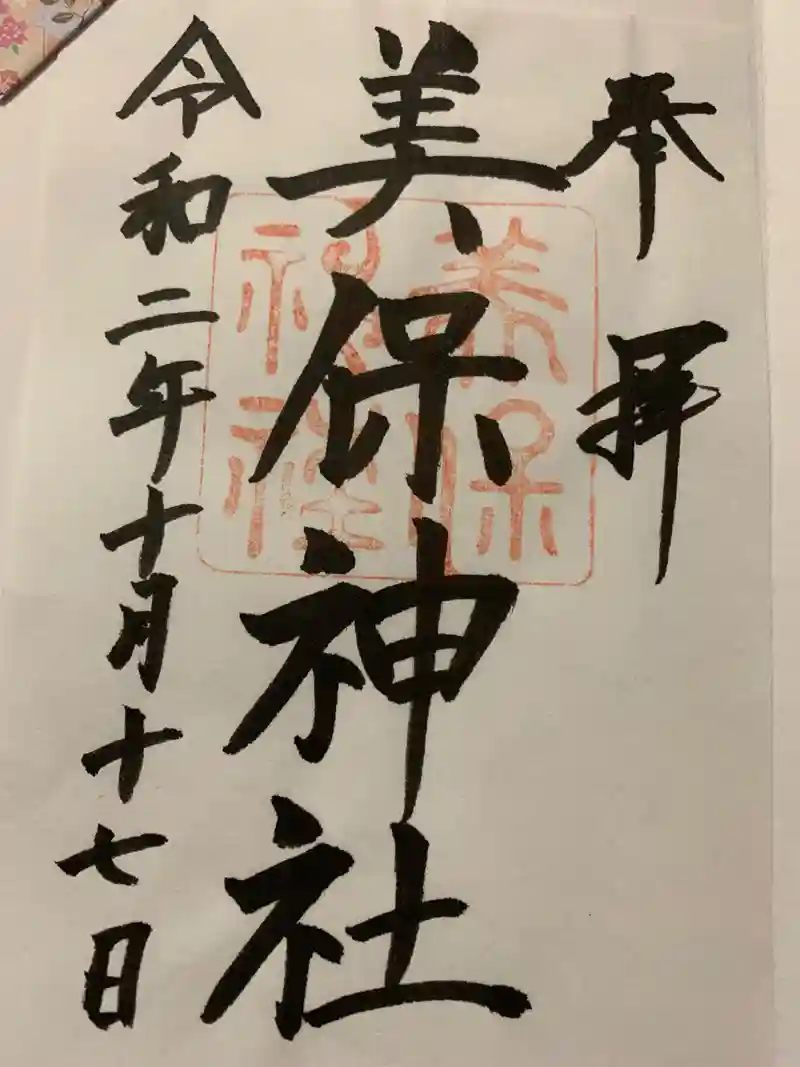 奉拝
美保神社
美保神社
令和二年十月十七日